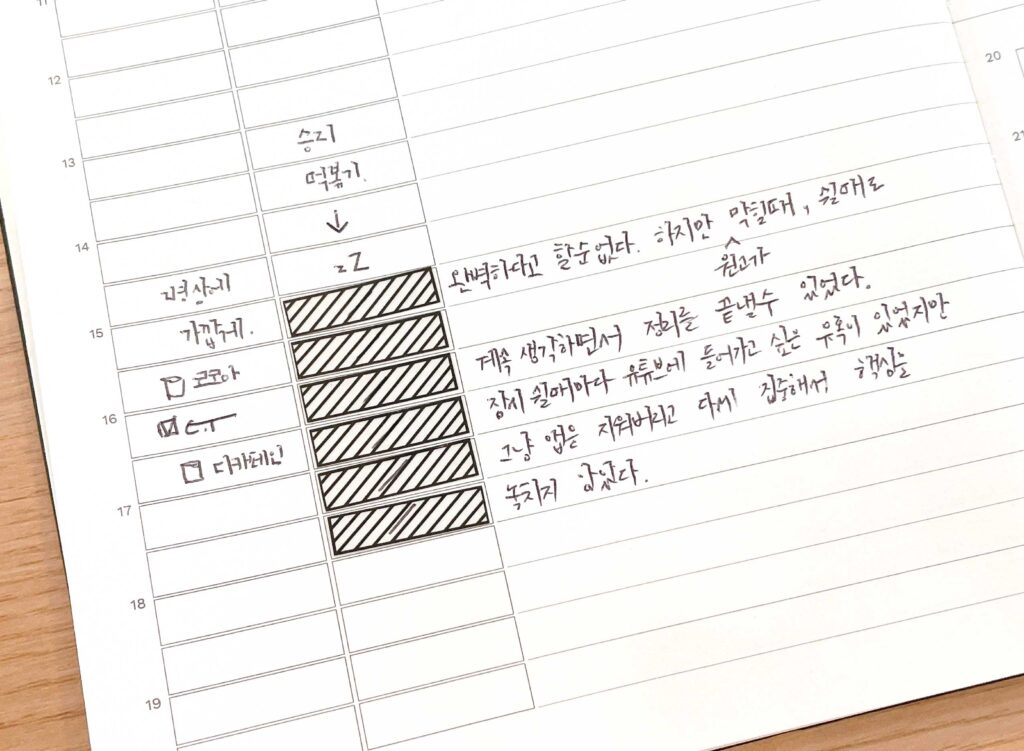 11
12
13
14
15
16
17
18
19
20
21
승리
떡볶기.
↓
zZ
가깝게.
코코아
E.T
디카페인
완벽하다고 할순없다. 하지만 막힐때, 쉴때로
원고가
계속 생각하면서 정리를 끝낼수 있었다.
잠시 쉴때마다 유튜브에 들어가고 싶은 유혹이 있었지만
그냥 앱은 지워버리고 다시 집중해서 책상을
놓치지 않았다.